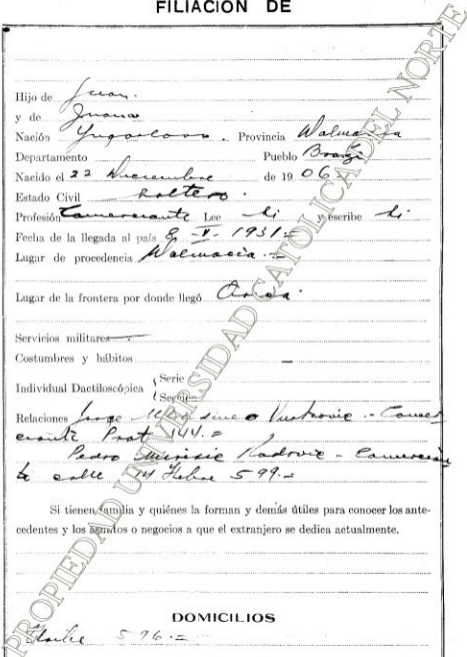 FILIACION DE
Hijo de Juan.
y de Juana
Nación Yugoeslava. Provincia Dalmacia
Departamento Pueblo
Nacido el 22 Diciembre de 1906
Estado Civil soltero.
Profesión Comerciante Lee si y escribe si
Fecha de la llegada al país 8-V-1931=
Lugar de procedencia Dalmacia.=
Lugar de la frontera por donde llegó Arica.
Servicios militares
Costumbres y hábitos
Individual Dactiloscópica Serie
Sección
Relaciones Jorge - Comer
ciante Prat 144.=
Pedro Radovic - Comercian
te calle 14 Febre 599.=
Si tienen familia y quiénes la forman y demás útiles para conocer los ante-
cedentes y los asuntos o negocios a que el extranjero se dedica actualmente.
DOMICILIOS
576.=
PROPIEDAD UNIVERSIDAD CATOLICA DEL NORTE